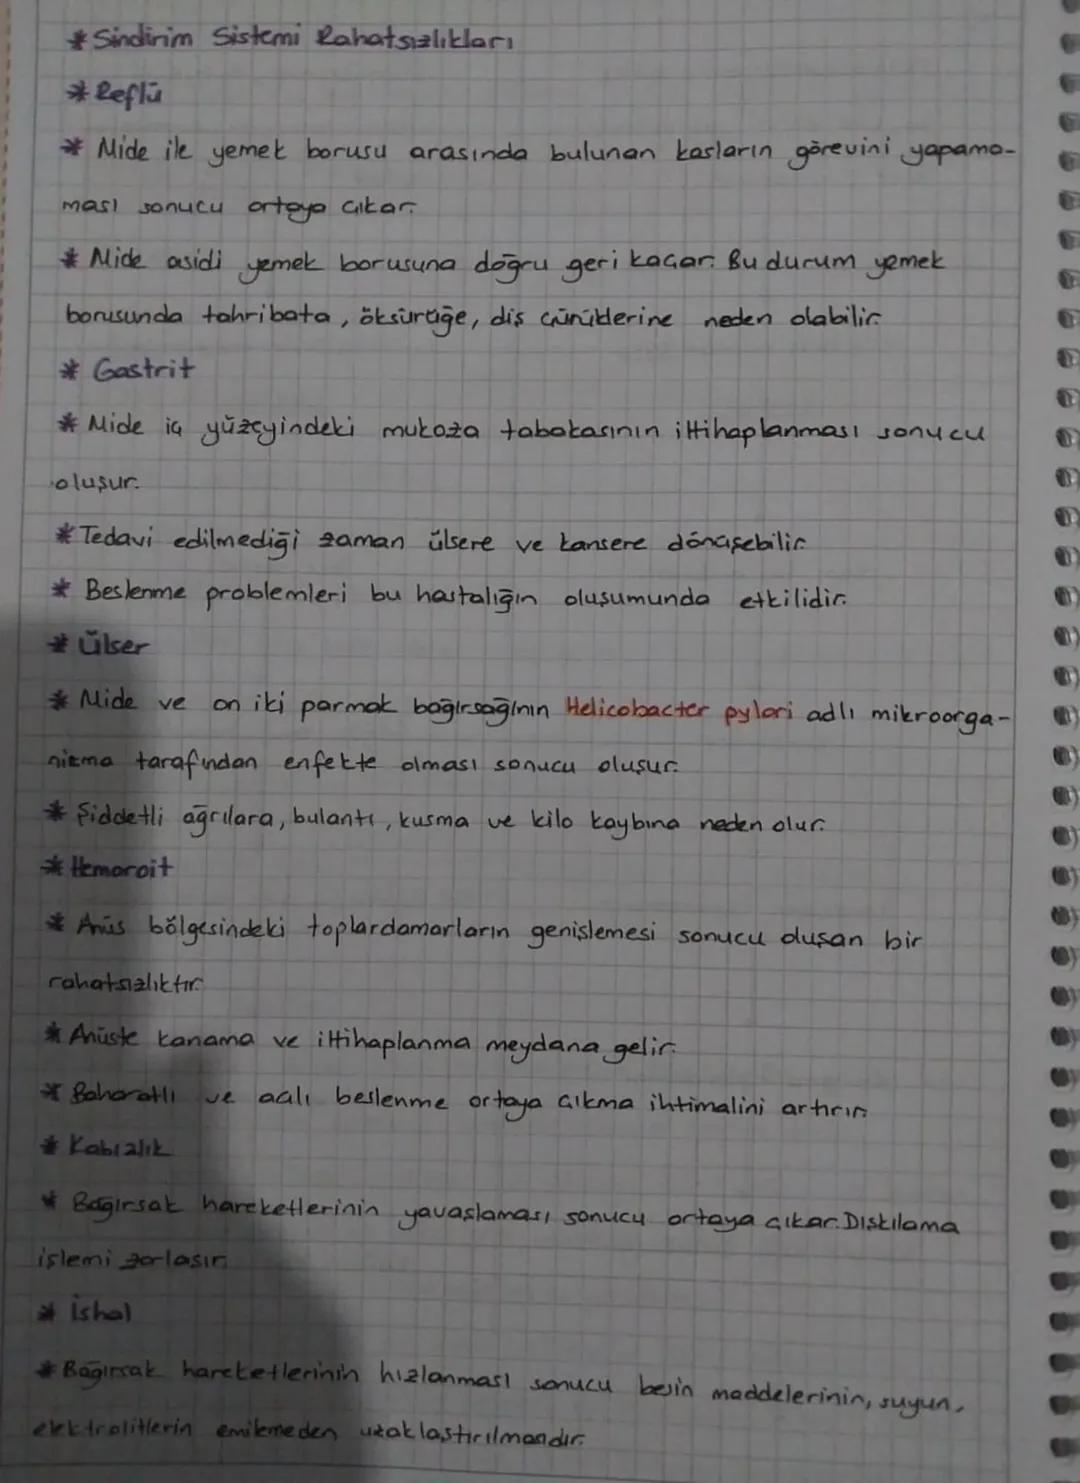 * Sindirim Sistemi Rahatsızlıkları
* Reflü
* Mide ile yemek borusu arasında bulunan kasların görevini yapama-
ması sonucu ortaya çıkar.
* Mide asidi yemek borusuna doğru geri kaçar. Bu durum yemek
borusunda tahribata, öksürüğe, diş çürüklerine neden olabilir.
* Gastrit
* Mide iç yüzeyindeki mukoza tabakasının iltihaplanması sonucu
oluşur.
* Tedavi edilmediği zaman ülsere ve kansere dönüşebilir.
* Beslenme problemleri bu hastalığın oluşumunda etkilidir.
* Ülser
* Mide ve on iki parmak bağırsağının Helicobacter pylori adlı mikroorga-
nizma tarafından enfekte olması sonucu oluşur.
* Şiddetli ağrılara, bulantı, kusma ve kilo kaybına neden olur.
* Hemoroit
* Anüs bölgesindeki toplardamarların genişlemesi sonucu oluşan bir
rahatsızlıktır.
* Anüste kanama ve iltihaplanma meydana gelir.
* Baharatlı ve acılı beslenme ortaya çıkma ihtimalini artırır.
* Kabızlık
* Bağırsak hareketlerinin yavaşlaması sonucu ortaya çıkar. Dışkılama
işlemi zorlaşır.
* İshal
* Bağırsak hareketlerinin hızlanması sonucu besin maddelerinin, suyun,
elektrolitlerin emilemeden uzaklaştırılmasıdır.